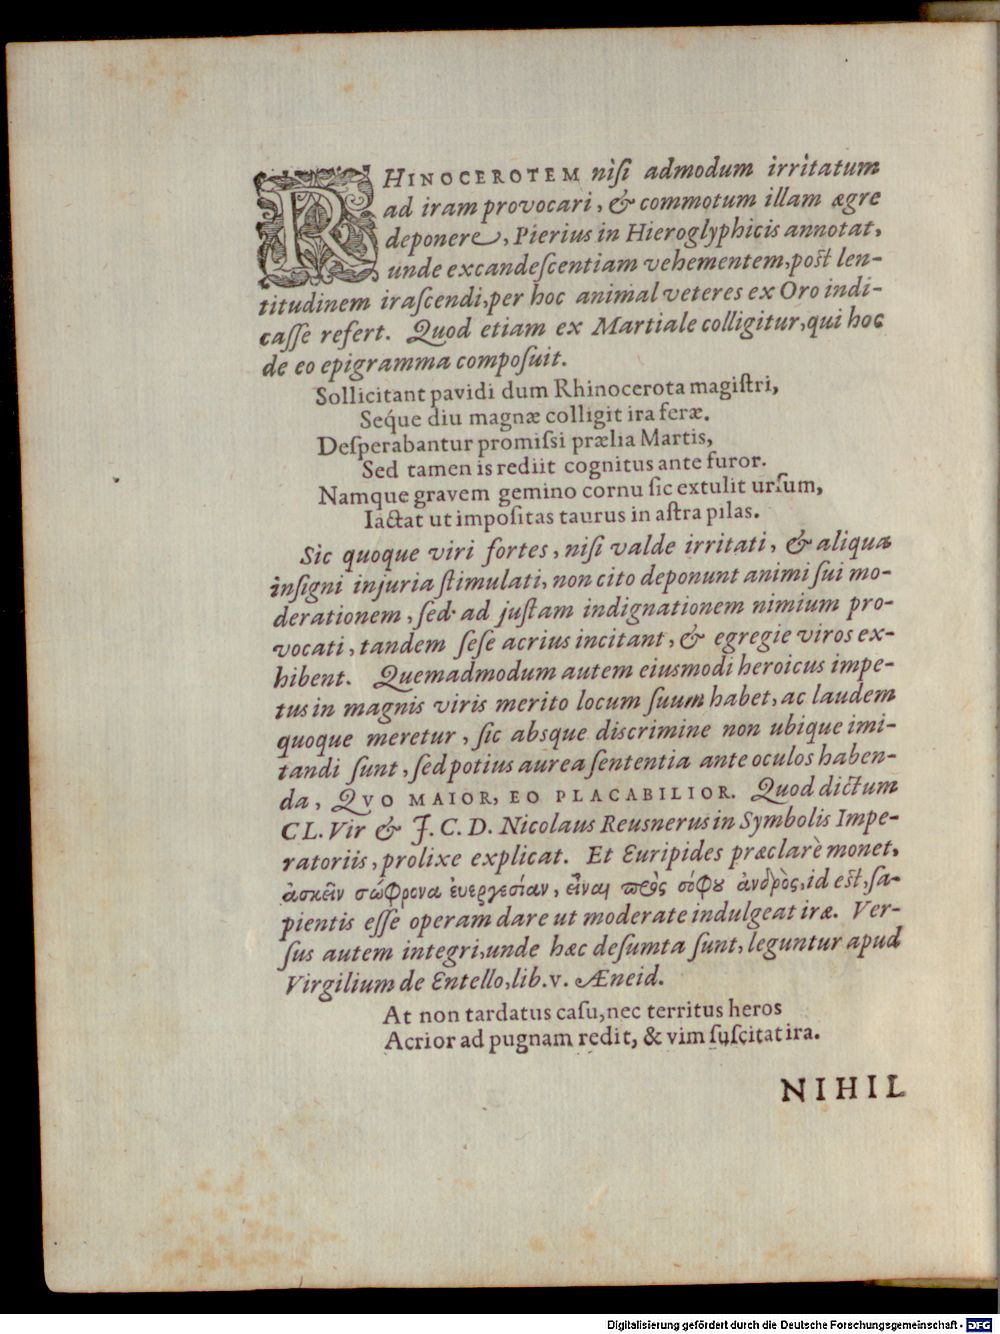 RHINOCEROTEM nisi admodum irritatum
ad iram provocari, & commotum illam ægre
deponere, Pierius in Hieroglyphicis annotat,
unde excandeſcentiam vehementem, poſt len-
titudinem iraſcendi, per hoc animal veteres ex Oro indi-
caſſe refert. Quod etiam ex Martiale colligitur, qui hoc
de eo epigramma compoſuit.
Sollicitant pavidi dum Rhinocerota magiſtri,
Seque diu magnæ colligit ira feræ.
Deſperabantur promiſsi prælia Martis,
Sed tamen is rediit cognitus ante furor.
Namque gravem gemino cornu ſic extulit urſum,
Iactat ut impoſitas taurus in aſtra pilas.
Sic quoque viri fortes, niſi valde irritati, & aliqua
inſigni injuria ſtimulati, non cito deponunt animi ſui mo-
derationem, ſed ad juſtam indignationem nimium pro-
vocati, tandem ſeſe acrius incitant, & egregie viros ex-
hibent. Quemadmodum autem eiusmodi heroicus impe-
tus in magnis viris merito locum ſuum habet, ac laudem
quoque meretur, ſic absque discrimine non ubique imi-
tandi ſunt, ſed potius aurea ſententia ante oculos haben-
da, QVO MAIOR, EO PLACABILIOR. Quod dictum
CL. Vir & J. C. D. Nicolaus Reusnerus in Symbolis Impe-
ratoriis, prolixe explicat. Et Euripides præclarè monet,
ἀσκεῖν σώφρονα ἐυεργεσίαν, εἶναι πρὸς σόφου ἀνδρὸς, id eſt, ſa-
pientis eſſe operam dare ut moderate indulgeat iræ. Ver-
ſus autem integri, unde hæc deſumta ſunt, leguntur apud
Virgilium de Entello, lib. v. Æneid.
At non tardatus caſu, nec territus heros
Acrior ad pugnam redit, & vim ſuſcitat ira.
NIHIL
Digitalisierung gefördert durch die Deutsche Forschungsgemeinschaft - DFG